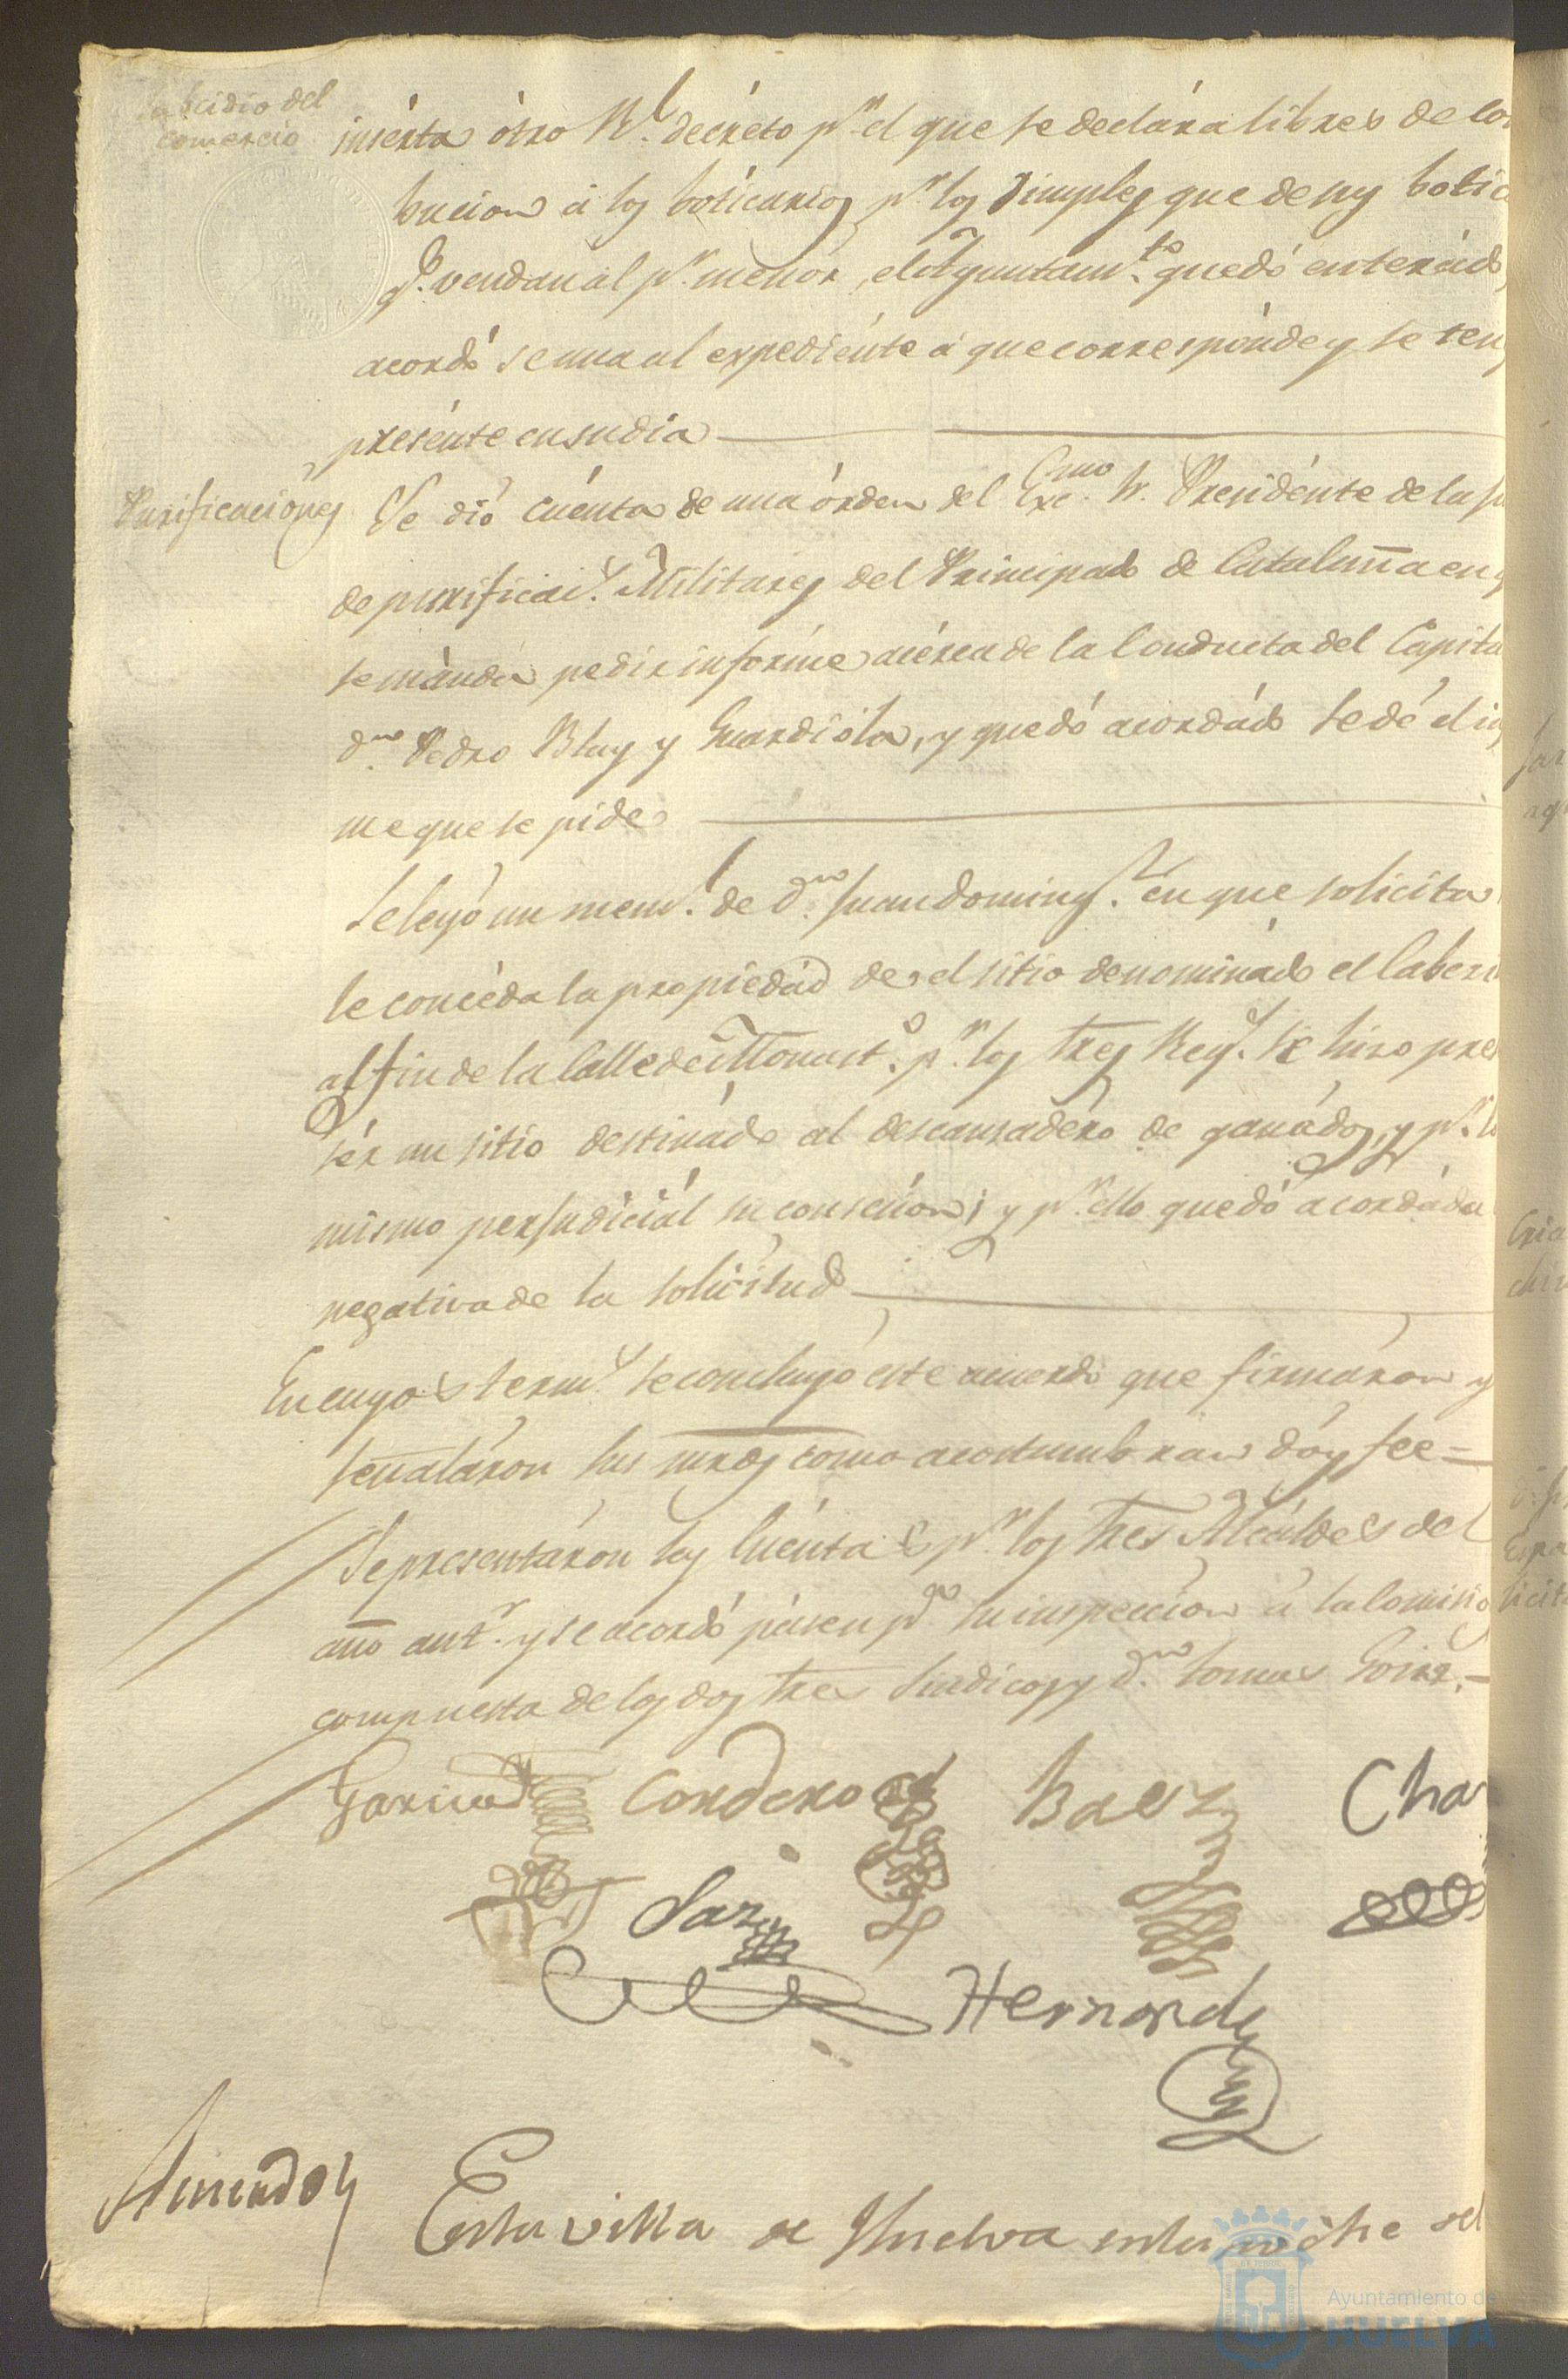 Subcidio del
comercio
insérta ótro Rl. decréto pr. el que se declára libres de con
bucion á los boticarios pr. los Simples que de sus botic
qe. vendan al pr. menór, el Ayuntamto. quedó enterádo
acordó se una al expediénte á que correspónde y se ten
presénte en su dia
Purificaciónes
Se dió cuénta de una órden del Excmo. Sr. Presidénte de la Ju
de purificacs. Militares del Principado de Cataluña en q
se mánda pedir infórme acérca de la Conducta del Capita
dn. Pedro Blay y Guardióla, y quedó acordádo se dé el in
me que se pide
Se leyó un meml. de dn. Juan Doming. en que solicita
se concéda la propiedád de el sitio denominádo el Laberi
al fin de la Calle de Monast.o pr. los tres Regs. se hiso pre
sér un sitio destinádo al descansadéro de ganádos, y pr. l
mismo perjudiciál su concesion; y pr. ello quedó acordáda
negativa de la solicitud
En cuyos terms. se concluyó este acuerdo que firmáron y
señaláron sus mrds como acostumbran doy fee =
Se presentáron las Cuéntas pr. los tres Alcáldes del
año antr. y se acordó pásen pa. su inspeccion á la Comisio
compuesta de los dos tres Sindicos y dn. Tomas
Garrido Cordero Baez Cha
Saz
Hernandz
Acuerdo
En la villa de Huelva en la noche del
Ayuntamiento de
HUELVA